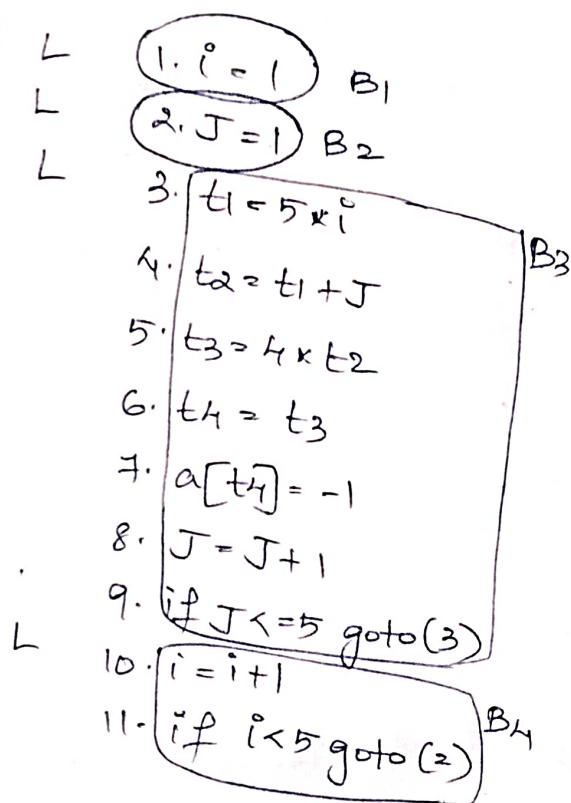 L 1. i = 1 B1
L 2. J = 1 B2
L 3. t1 = 5 * i B3
4. t2 = t1 + J
5. t3 = 4 * t2
6. t4 = t3
7. a[t4] = -1
8. J = J + 1
9. if J <= 5 goto (3)
L 10. i = i + 1
11. if i < 5 goto (2) B4